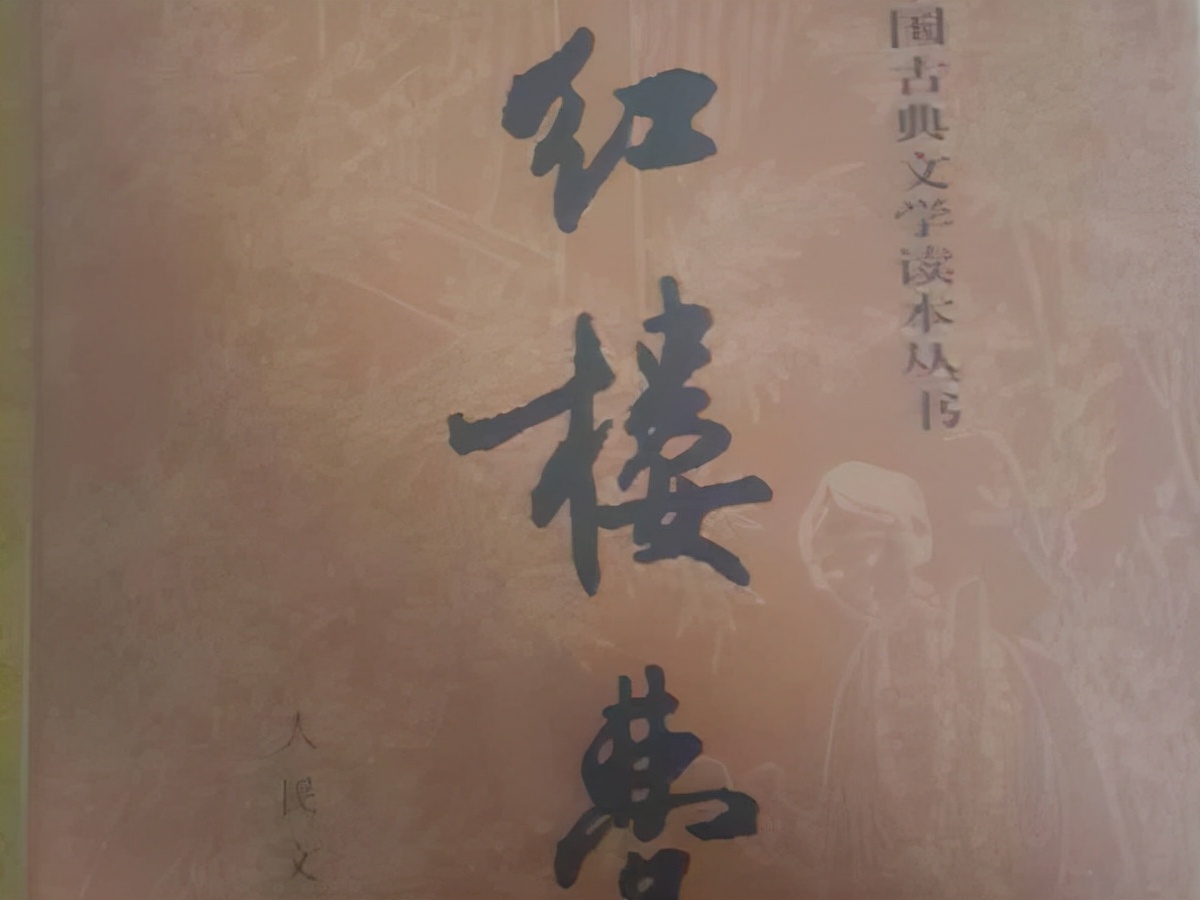 国古典文学读本丛书
红楼夢
人民文